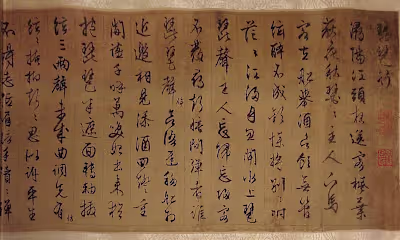 琵琶行
潯陽江頭夜送客楓葉
荻花秋瑟瑟主人下馬
客在船舉酒欲飲無管
絃醉不成歡慘將別別時
茫茫江浸月忽聞水上琵
琶聲主人忘歸客
不發尋聲暗問彈者誰
琵琶聲停欲語遲移船相
近邀相見添酒回燈重
開宴千呼萬喚始出來猶
抱琵琶半遮面轉軸撥
絃三兩聲未成曲調先有
絃掩抑聲聲思似訴平生
不得志低眉信手續續彈